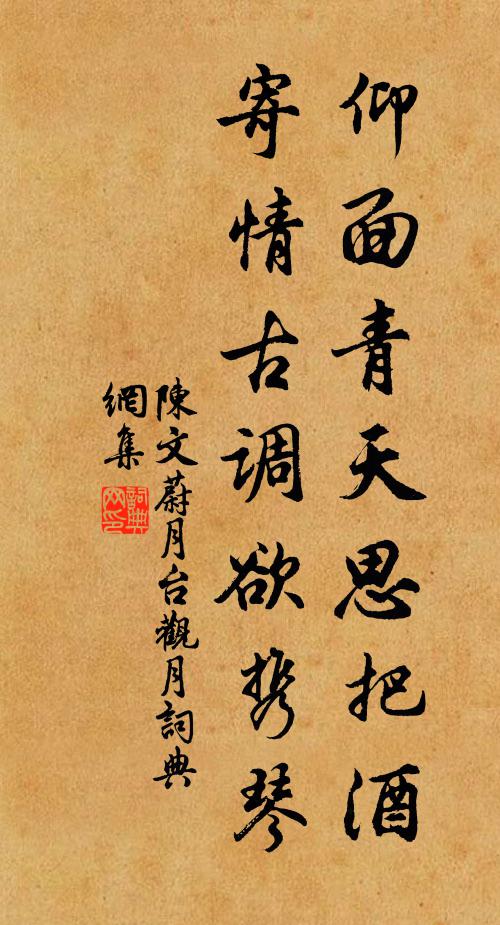 仰面青天思把酒
寄情古调欲携琴
陳文蔚月台觀月詞典
網集
詞典网印